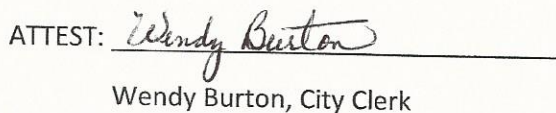 ATTEST: Wendy Burton
Wendy Burton, City Clerk